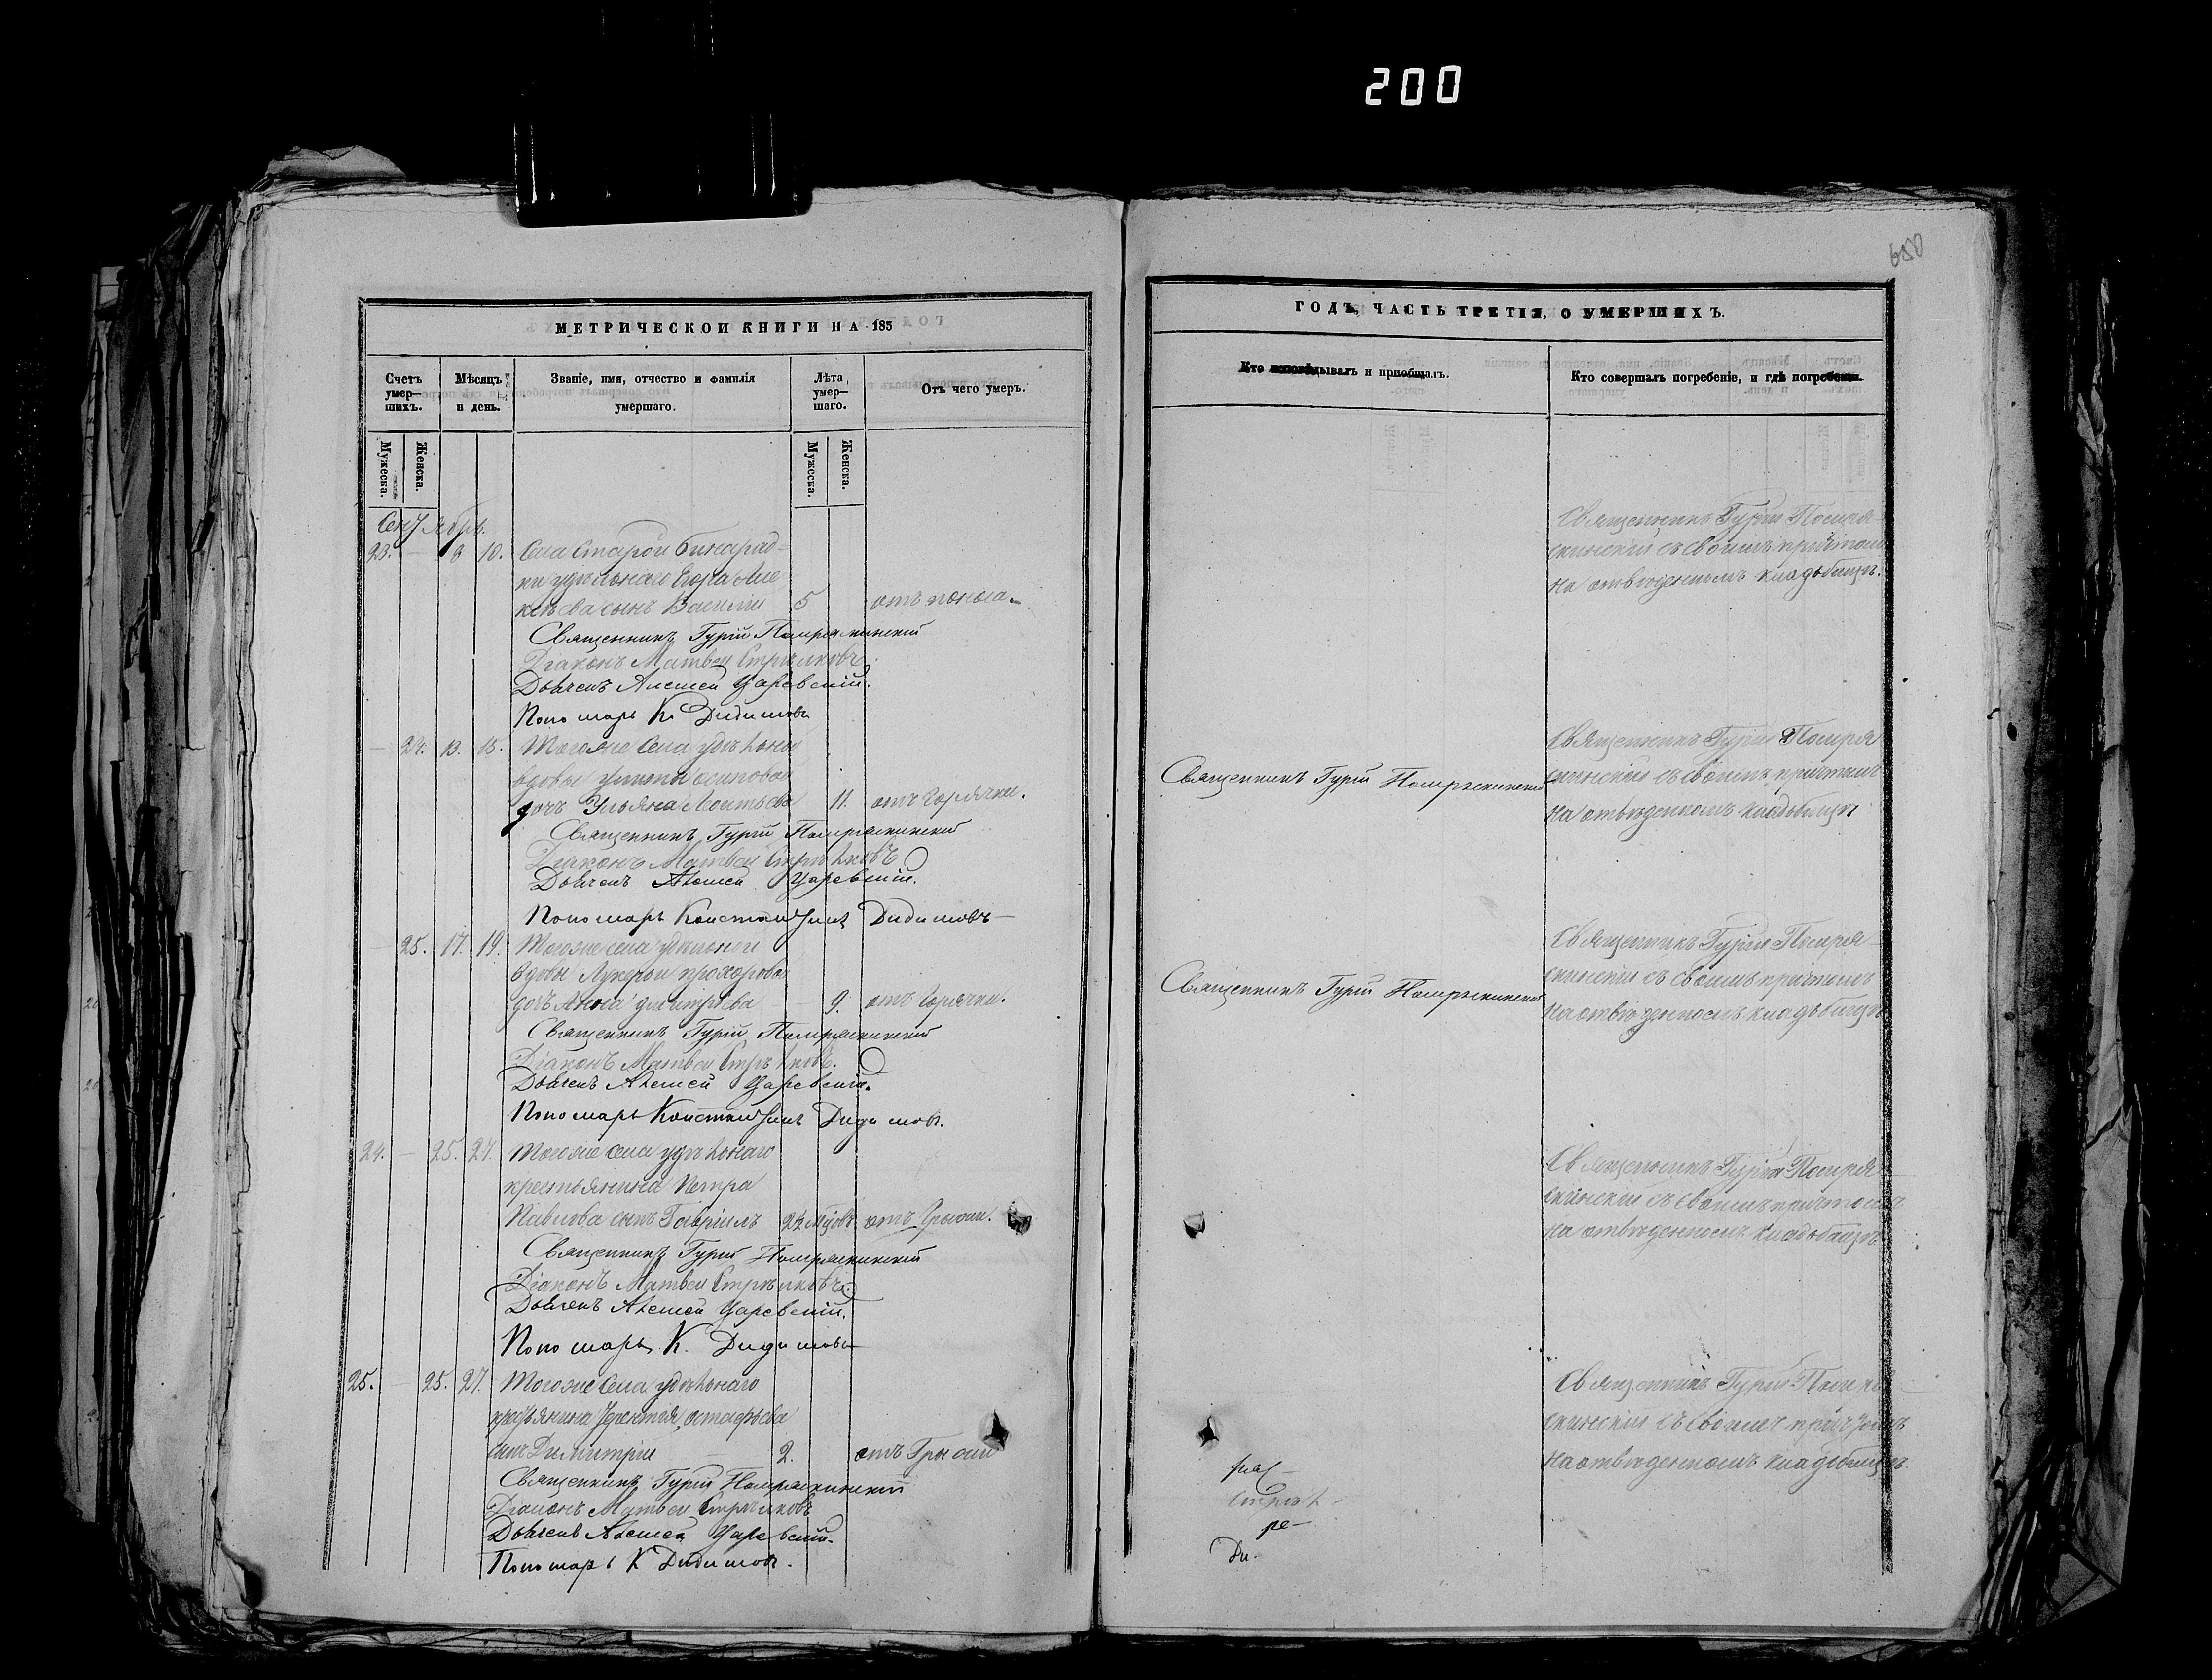 200
650
МЕТРИЧЕСКОЙ КНИГИ НА 185
Счетъ умер-шихъ.
Мѣсяцъ и день.
Званіе, имя, отчество и фамилія умершаго.
Лѣта умер-шаго.
Отъ чего умеръ.
Мужеска.
Женска.
Мужеска.
Женска.
Сентябрь.
23. — 8 10. Села Старой Бинарад-
ки удѣльнаго Егора Але
ксѣева сынъ Василій 5 отъ поноса.
Священникъ Гурій Помряскинскій
Діаконъ Матвей Стрѣлковъ.
Дьячекъ Алексей Царевскій.
Пономарь К. Дидимовъ
— 24. 13. 15. Тогоже села удѣльной
вдовы Улиты осиповой
дочь Ульяна Леонтьева 11. отъ горячки.
Священникъ Гурій Помряскинскій
Діаконъ Матвей Стрѣлковъ
Дьячекъ Алексей Царевскій.
Пономарь Константинъ Дидимовъ
— 25. 17. 19. Тогоже села удѣльной
вдовы Лукерьи прохоровой
дочь Анна димитріева — 9. отъ горячки.
Священникъ Гурій Помряскинскій
Діаконъ Матвей Стрѣлковъ.
Дьячекъ Алексей Царевскій.
Пономарь Константинъ Дидимовъ.
24. — 25. 27. Тогоже села удѣльнаго
крестьянина Петра
Павлова сынъ Гавріилъ отъ Грыжи.
Священникъ Гурій Помряскинскій
Діаконъ Матвей Стрѣлковъ
Дьячекъ Алексей Царевскій.
Пономарь К. Дидимовъ
25. — 25. 27. Тогоже села удѣльнаго
крестьянина остафьева
сынъ Димитрій — 2. отъ Грыжи
Священникъ Гурій Помряскинскій
Діаконъ Матвей Стрѣлковъ
Дьячекъ Алексей Царевскій.
Пономарь К Дидимовъ.
ГОДЪ, ЧАСТЬ ТРЕТІЯ, О УМЕРШИХЪ.
Кто исповѣдывалъ и пріобщалъ.
Кто совершалъ погребеніе, и гдѣ погребены.
Священникъ Гурій Помря-
скинскій съ своимъ причтомъ
на отвѣденномъ кладбищѣ.
Священникъ Гурій Помряскинскій
Священникъ Гурій Помря
скинскій съ своимъ причтомъ
на отвѣденномъ кладбищѣ
Священникъ Гурій Помряскинскій
Священникъ Гурій Помря-
скинскій съ своимъ причтомъ
на отвѣденномъ кладбищѣ
Священникъ Гурій Помря
скинскій съ своимъ причтомъ
на отвѣденномъ кладбищѣ
Священникъ Гурій Помря
скинскій съ своимъ причтомъ
на отвѣденномъ кладбищѣ.
ре—
Ди.